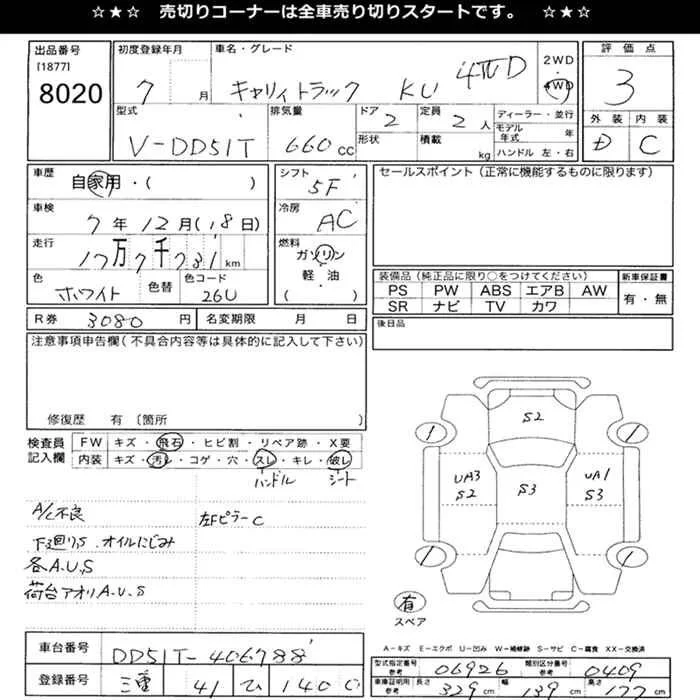 ☆★☆ 売切りコーナーは全車売り切りスタートです。 ☆★☆
出品番号 初度登録年月 車名・グレード 2WD 評価点
[1877]
8020 7 月 キャリィトラック KU 4WD ・ 4WD 3
型式 排気量 ドア 2 定員 2 人 ディーラー・並行 外装 内装
V-DD51T 660 cc 形状 積載 kg モデル年式 年 D C
ハンドル 左・右
車歴 自家用・( ) シフト 5F セールスポイント(正常に機能するものに限ります)
車検 7年12月(18日) 冷房 AC
走行 17万7千731km 燃料 ガソリン
軽・油
( )
色 ホワイト 色替 色コード 26U
装備品(純正品に限り○をつけてください) 新車保証書
PS PW ABS エアB AW 有・無
SR ナビ TV カワ
R券 3080 円 名変期限 月 日 後日品
注意事項申告欄(不具合内容等は具体的に記入して下さい)
修復歴 有〔箇所 〕
検査員 FW キズ・飛石・ヒビ割・リペア跡・X要
記入欄 内装 キズ・汚レ・コゲ・穴・スレ・キレ・破レ
ハンドル シート
A/C不良 左Fピラー C
下廻りS、オイルにじみ
各A.U.S
荷台アオリA.U.S
S2
1 1
UA3 S2 S3 UA1 S3
1 1
有
スペア
A-キズ E-エクボ U-凹み W-補修跡 S-サビ C-腐食 XX-交換済
車台番号 DD51T-406788
型式指定番号 参考 06926 類別区分番号 参考 0409
登録番号 三重 41 ひ 140
車庫証明用 参考 長さ 329 cm 幅 139 cm 高さ 177 cm